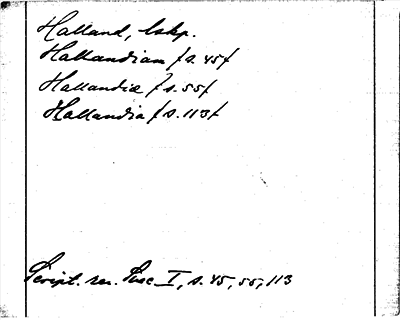 Halland, lskp.
Hallandiam /s. 45/
Hallandiæ /s. 55/
Hallandia /s. 113/
Script. rer. Suec. I, s. 45, 55, 113